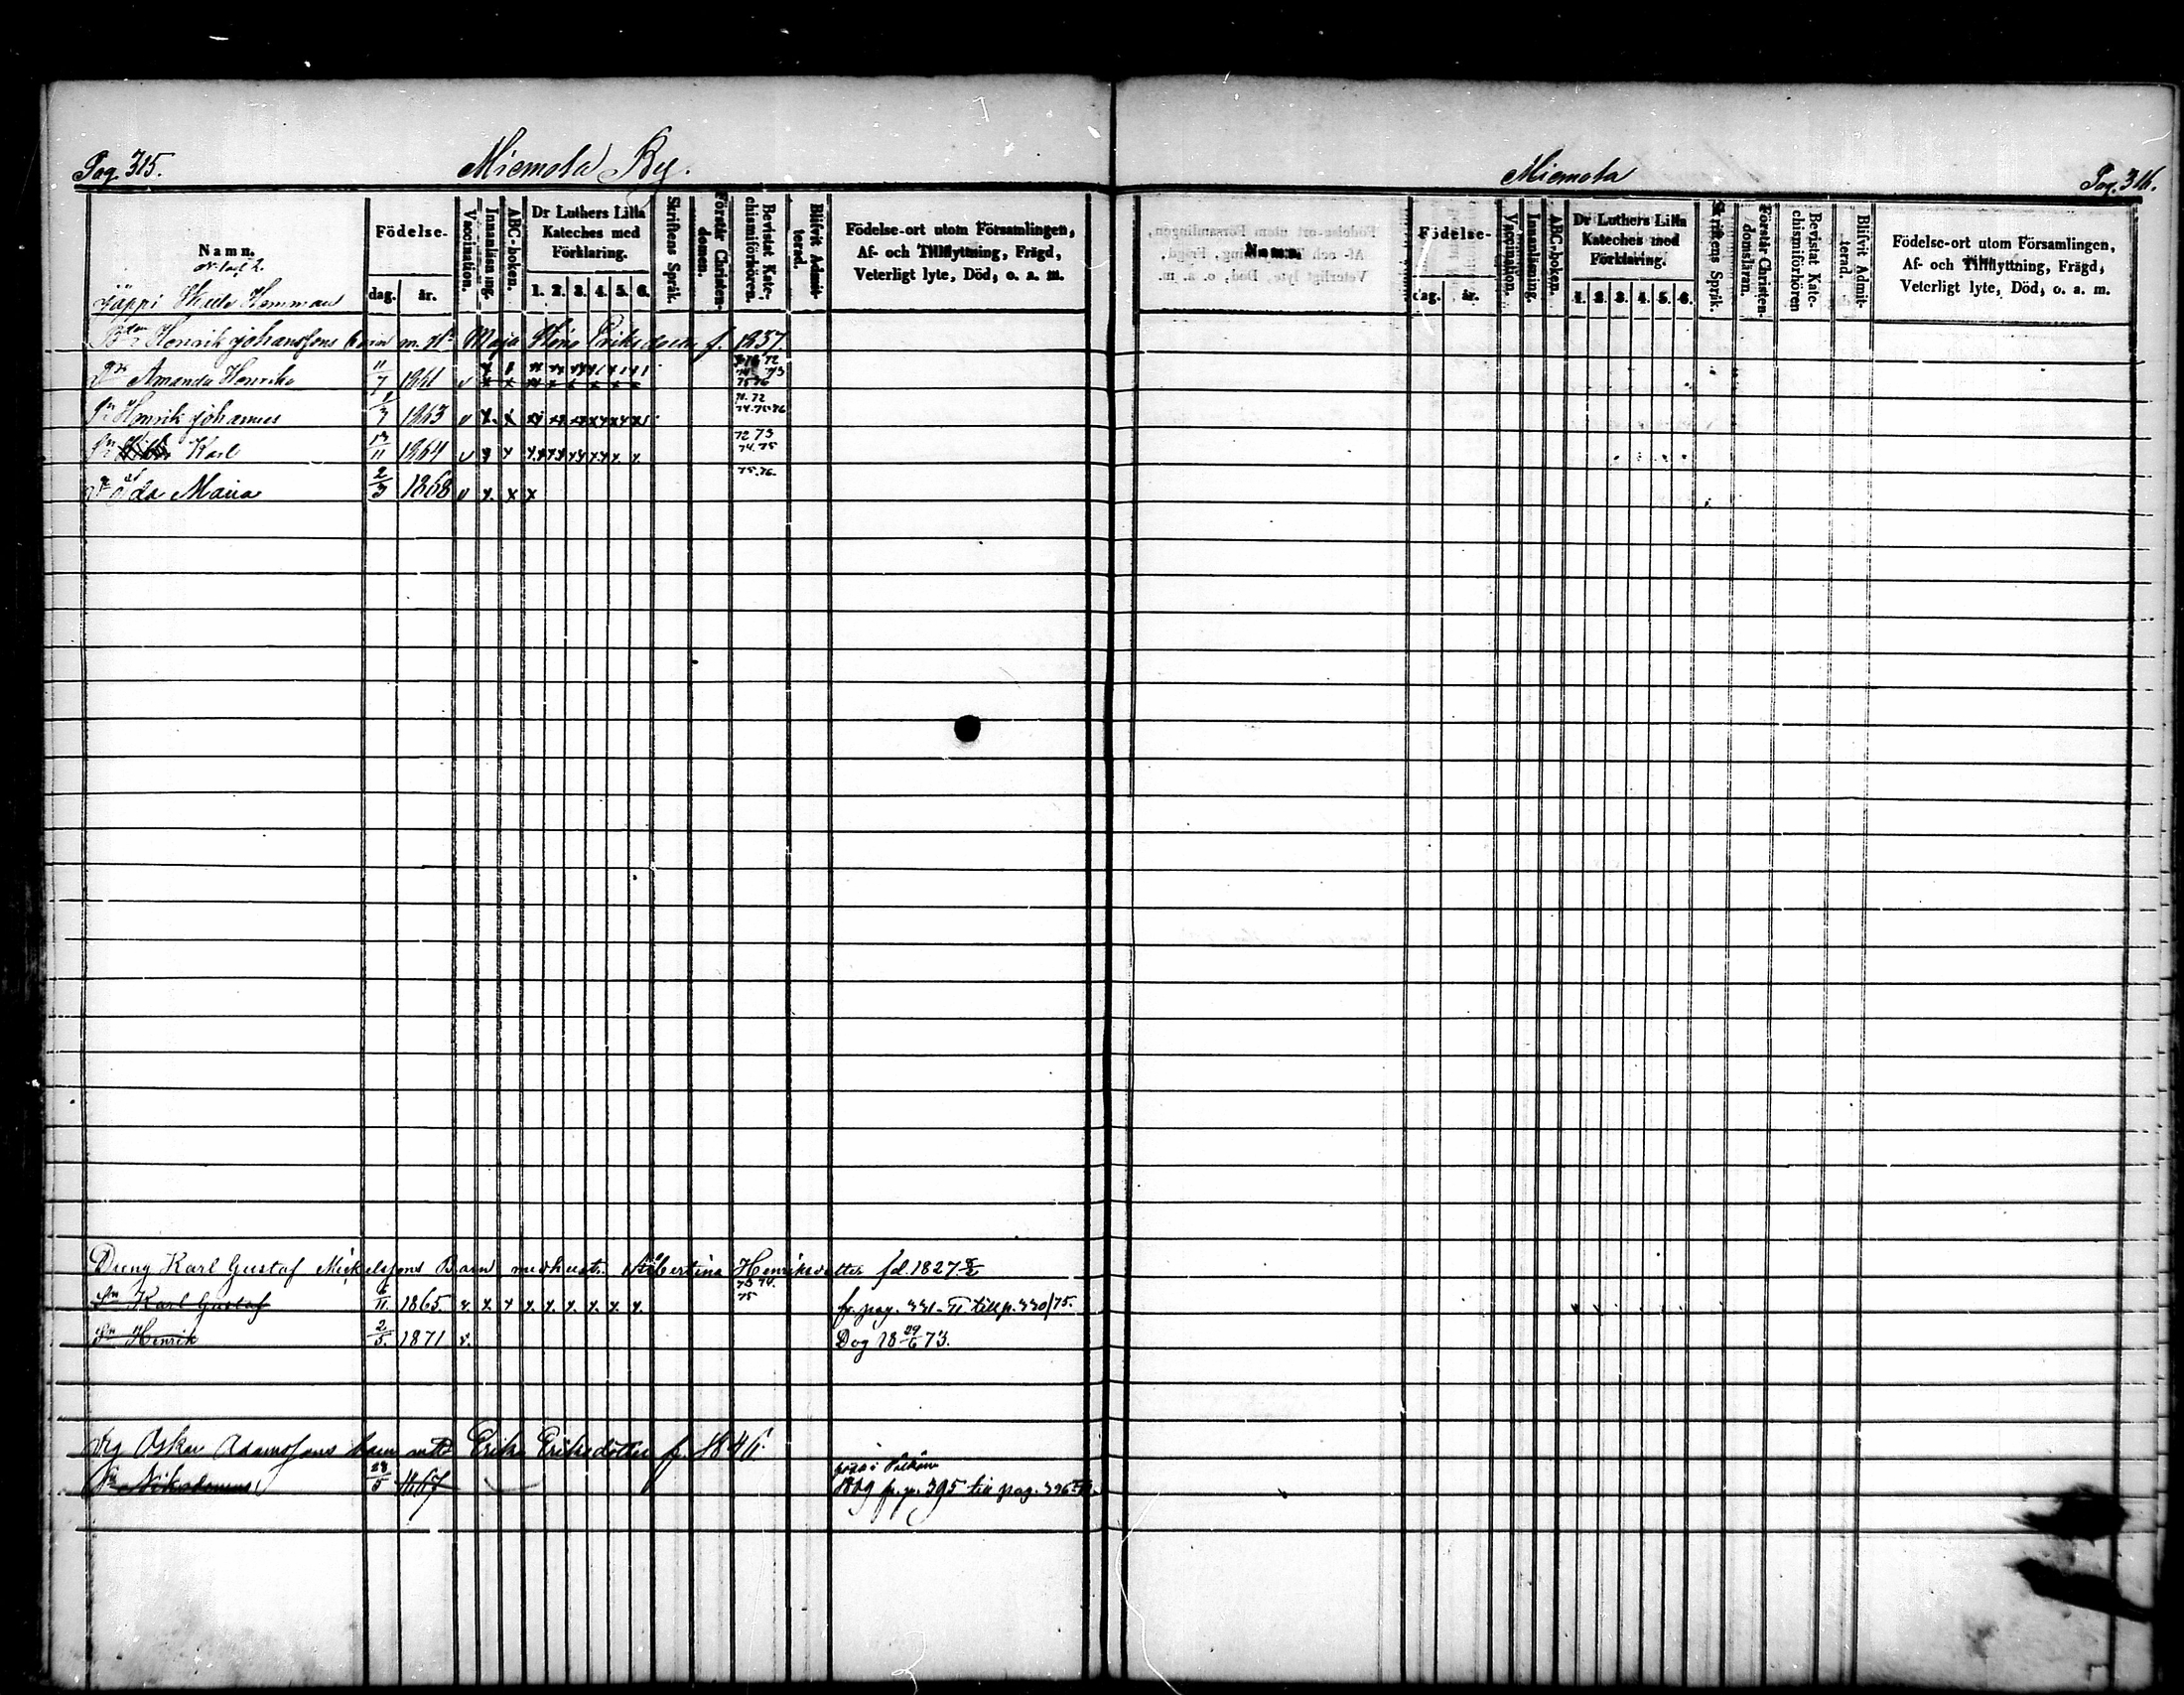 Pag. 315.
Miemola By.
Namn.
Födelse-
dag.
år.
Vaccination.
Innanläsning.
ABC-boken.
Dr Luthers Lilla
Kateches med
Förklaring.
1. 2. 3. 4. 5. 6.
Skriftens Språk.
Förstår Christen-
domen.
Bevistat Kate-
chismiförhören.
Blifvit Admit-
terad.
Födelse-ort utom Församlingen,
Af- och Tillflyttning, Frägd,
Veterligt lyte, Död, o. a. m.
Jäppi Hemman
Henrik Johanssons barn m. H. Maja Eriksdotter f. 1837
Amanda Henrika 11/7 1861 v x x 72 73 75 76
Sn Henrik Johannes 1863 v x x 72 74.75.76
Sn Karl 11 1864 v x x 72 73 74.75
Ida Maria 2/3 1868 v x x x 75.76.
Dreng Karl Gustaf Mickelssons Barn med hust. Albertina Henriksdotter fd. 1827
Sn Karl Gustaf 6/11 1865 v. x x x x. x. x. x. x. 73 74. 75 fr. pag. 331 till p. 330/75.
Sn Henrik 2/5. 1871 v. Dog 18 29/6 73.
Drg Oskar Adamssons barn Erika Eriksdotter f. 1846.
Sn Nikodemus 28/5 1867 1869 fr. p. 395 till pag. 396
Miemola
Pag. 316.
Namn.
Födelse-
dag.
år.
Vaccination.
Innanläsning.
ABC-boken.
Dr Luthers Lilla
Kateches med
Förklaring.
1. 2. 3. 4. 5. 6.
Skriftens Språk.
Förstår Christen-
domsläran.
Bevistat Kate-
chismiförhören
Blifvit Admit-
terad.
Födelse-ort utom Församlingen,
Af- och Tillflyttning, Frägd,
Veterligt lyte, Död, o. a. m.